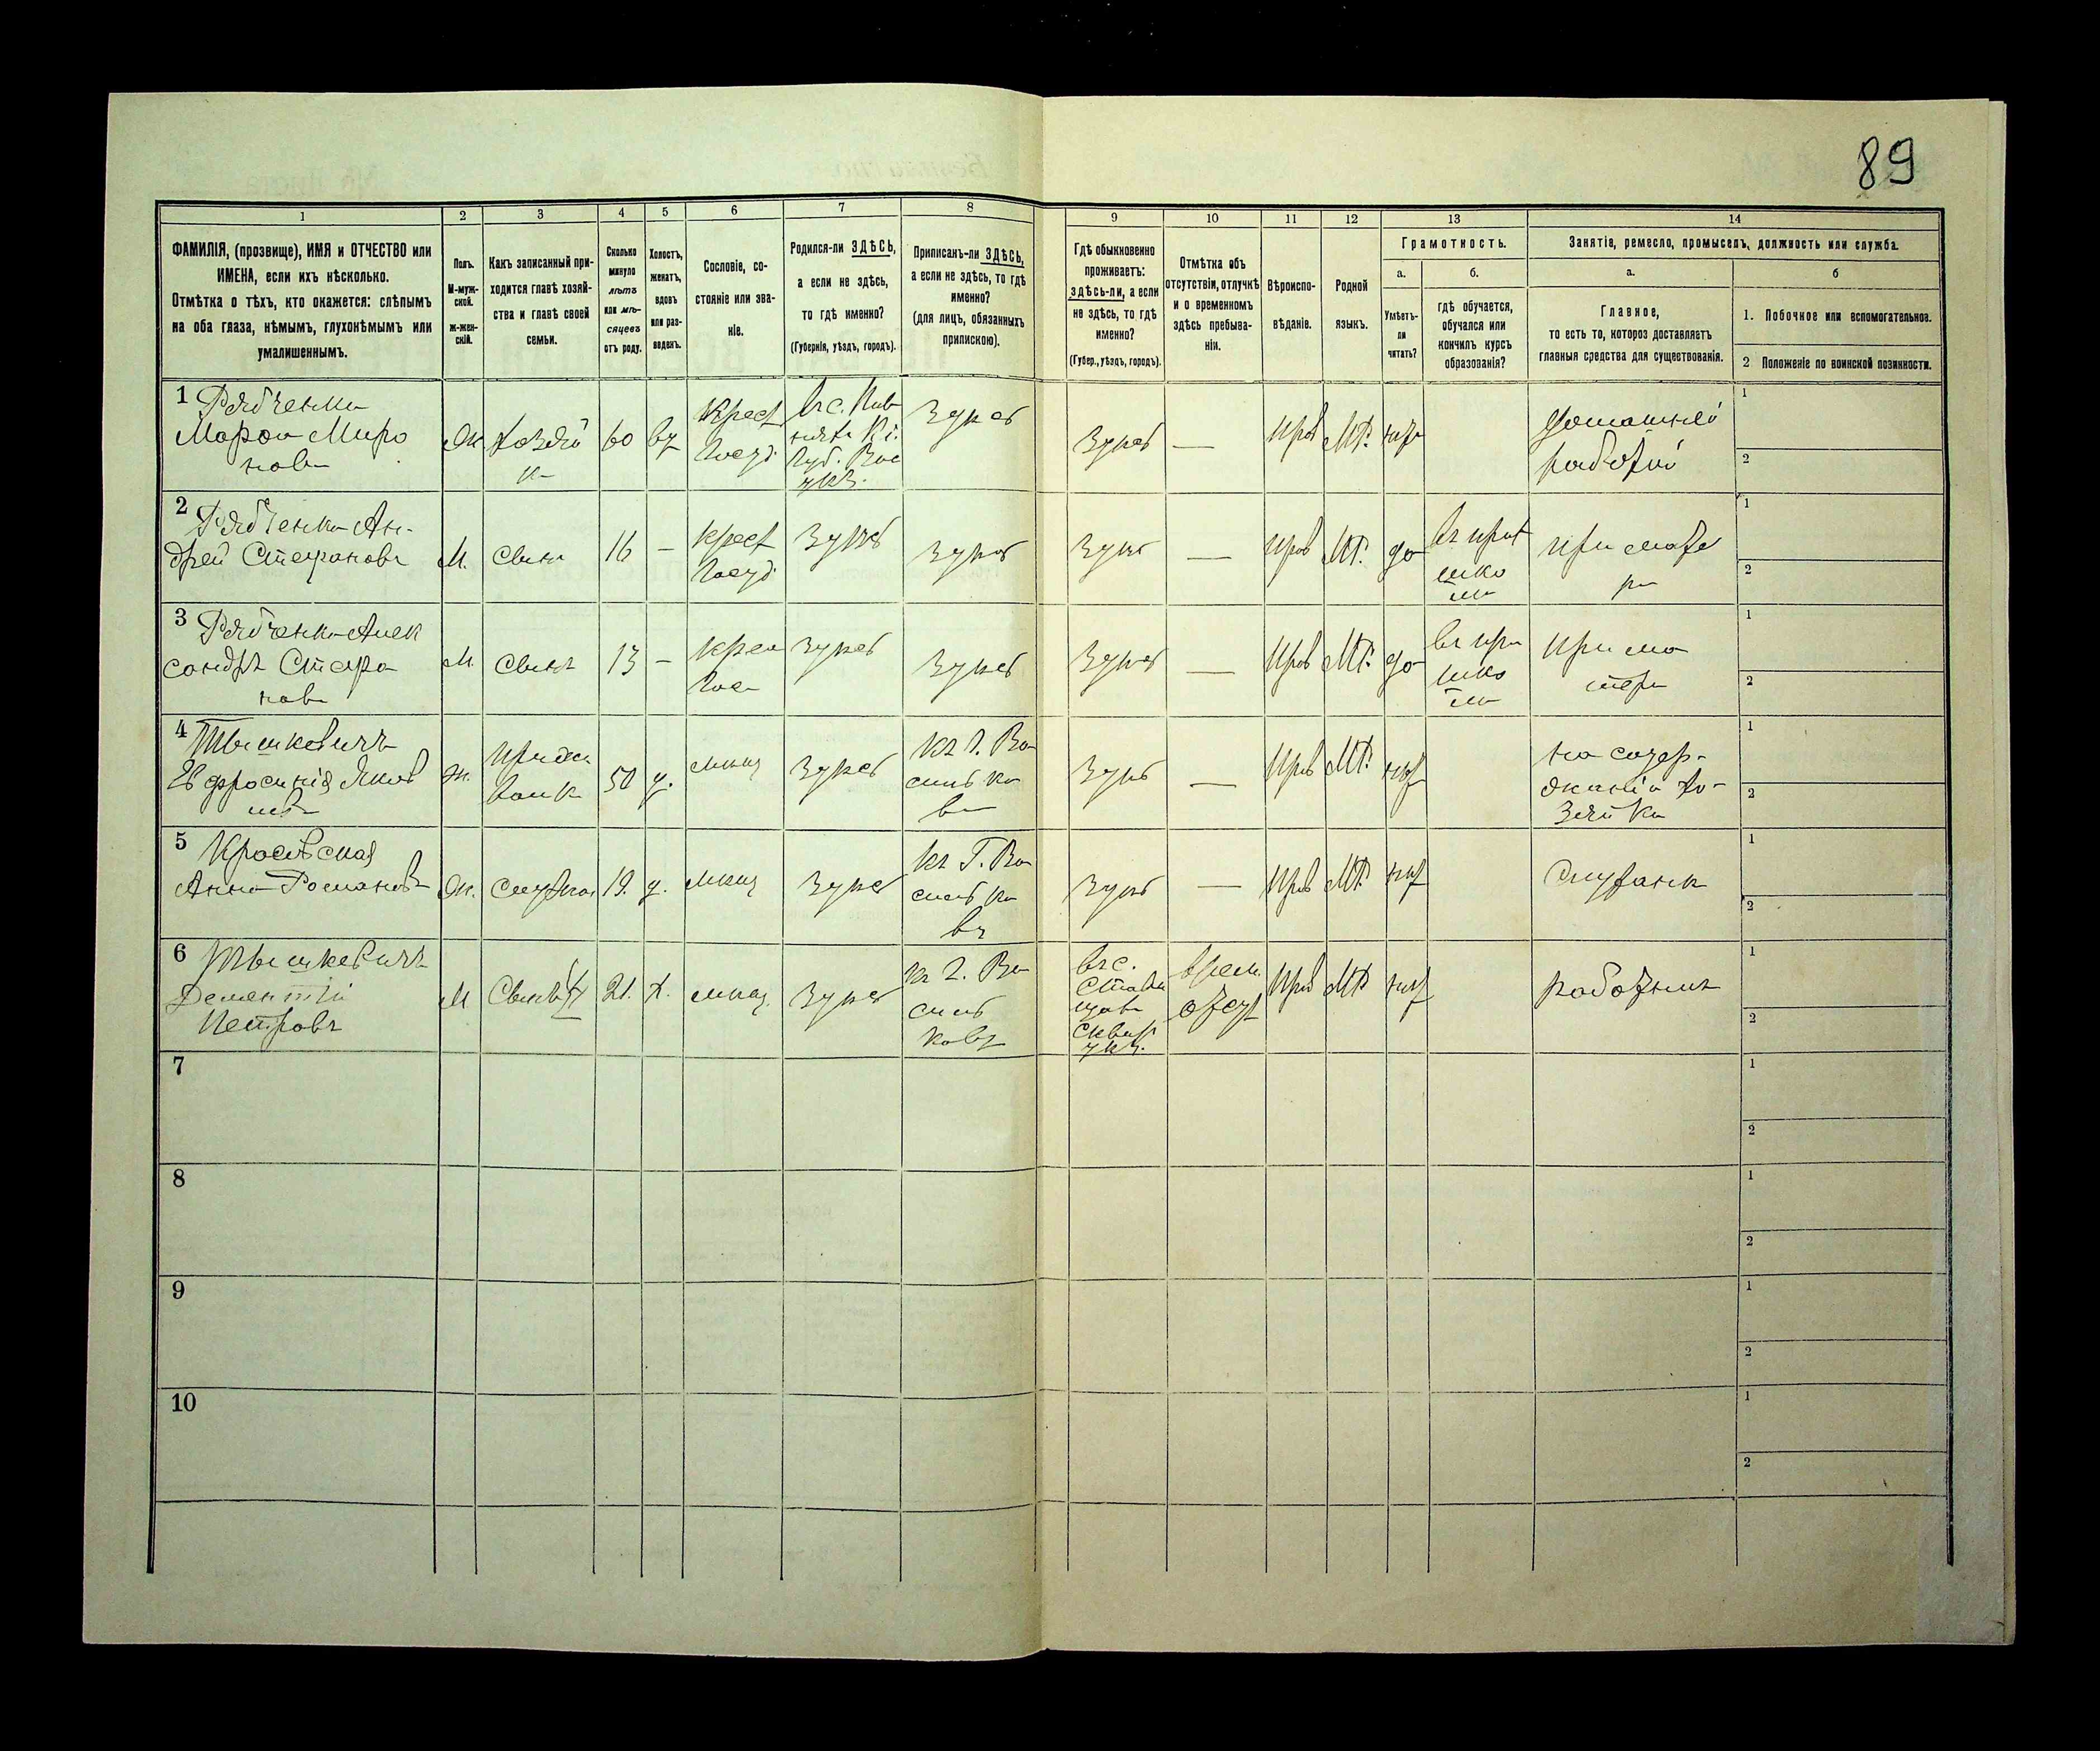 89
1
2
3
4
5
6
7
8
9
10
11
12
13
14
ФАМИЛІЯ, (прозвище), ИМЯ и ОТЧЕСТВО или
ИМЕНА, если ихъ нѣсколько.
Отмѣтка о тѣхъ, кто окажется: слѣпымъ
на оба глаза, нѣмымъ, глухонѣмымъ или
умалишеннымъ.
Полъ.
М-муж-
ской.
Ж-жен-
скій.
Какъ записанный при-
ходится главѣ хозяй-
ства и главѣ своей
семьи.
Сколько
минуло
лѣтъ
или мѣ-
сяцевъ
отъ роду.
Холостъ,
женатъ,
вдовъ
или раз-
веденъ.
Сословіе, со-
стояніе или зва-
ніе.
Родился-ли ЗДѢСЬ,
а если не здѣсь,
то гдѣ именно?
(Губернія, уѣздъ, городъ).
Приписанъ-ли ЗДѢСЬ,
а если не здѣсь, то гдѣ
именно?
(для лицъ, обязанныхъ
припискою).
Гдѣ обыкновенно
проживаетъ:
здѣсь-ли, а если
не здѣсь, то гдѣ
именно?
(Губер., уѣздъ, городъ).
Отмѣтка объ
отсутствіи, отлучкѣ
и о временномъ
здѣсь пребыва-
ніи.
Вѣроиспо-
вѣданіе.
Родной
языкъ.
Грамотность.
а.
Умѣетъ-
ли
читать?
б.
гдѣ обучается,
обучался или
кончилъ курсъ
образованія?
Занятіе, ремесло, промыселъ, должность или служба.
а.
Главное,
то есть то, которое доставляетъ
главныя средства для существованія.
б
1. Побочное или вспомогательное.
2 Положеніе по воинской повинности.
1
Марфа Миро
нова
Ж.
Хозяй
к
60
Крест
Госуд.
Здѣсь
Здѣсь
—
Прав
МР.
нѣт
домашней
работой
1
2
2
Рябченко Ан-
дрей Степановъ
М.
Сынъ
16
—
Крест
Госуд
Здѣсь
Здѣсь
Здѣсь
—
Прав
МР.
да
шко
лѣ
при мате
ри
1
2
3
Рябченко Алек
сандръ Степа
новъ
М
Сынъ
13
—
Крес
Гос
Здѣсь
Здѣсь
Здѣсь
—
Прав
МР.
да
шко
лѣ
при ма
тери
1
2
4
Тышкевичъ
Евфросинія Яков
ж.
50
д.
мѣщ
Здѣсь
къ г. Ва
силь ко
ву
Здѣсь
—
Прав
МР.
нѣт
на содер-
жаніи хо-
зяйки
1
2
5
Анна Романов
Ж.
19.
д.
мѣщ
Здѣсь
къ г. Ва
силь ко
ву
Здѣсь
—
Прав
МР.
нѣт
Служанк
1
2
6
Тышкевичъ
Дементій
Петровъ
М
Сынъ 4
21.
Х.
мѣщ.
Здѣсь
къ г. Ва
силь
кову
въ с.
Стави
щах
Сквир
уѣз.
врем.
отсут
Прав
МР
нѣт
работникъ
1
2
7
1
2
8
1
2
9
1
2
10
1
2